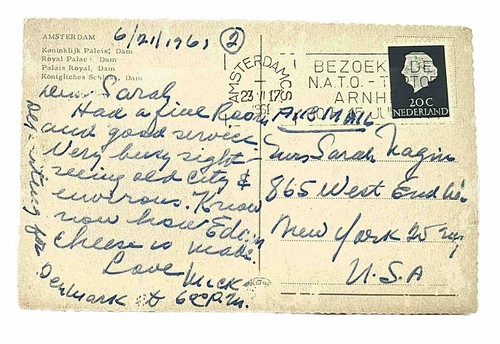 6/21/1961 ②
AMSTERDAM
Koninklijk Paleis, Dam
Royal Palace, Dam
Palais Royal, Dam
Königliches Schloß, Dam
Dear Sarah
Had a fine Room
and good service.
Very busy sight-
seeing old city &
environs. Know
now how Edam
cheese is made.
Love Mick
Departing for
Denmark 6 P.M.
AMSTERDAM CS
23 VI 17
1961
BEZOEK DE
N.A.T.O. - T
ARNH
20 C
NEDERLAND
Air Mail
Mrs Sarah Nagin
865 West End Ave
New York 25 NY
U.S.A